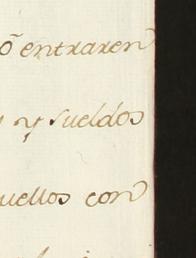 õ entraren
y sueldos
uellos con